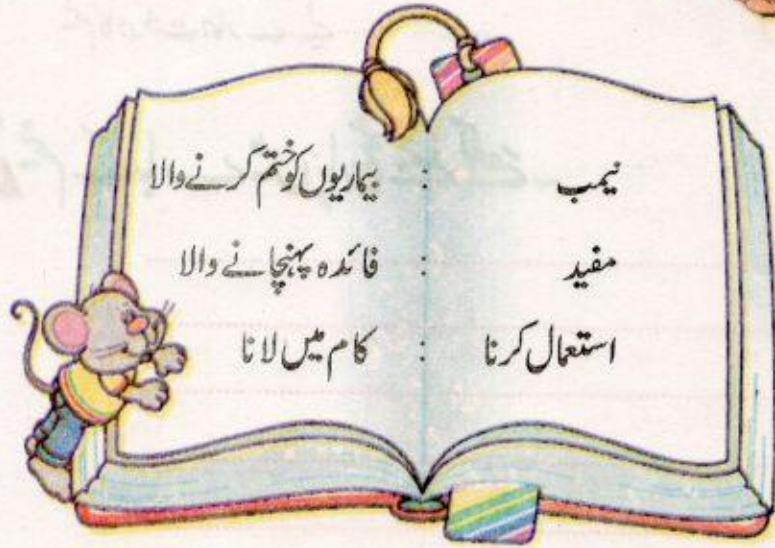 نیمب : بیماریوں کو ختم کرنے والا
مفید : فائدہ پہنچانے والا
استعمال کرنا : کام میں لانا